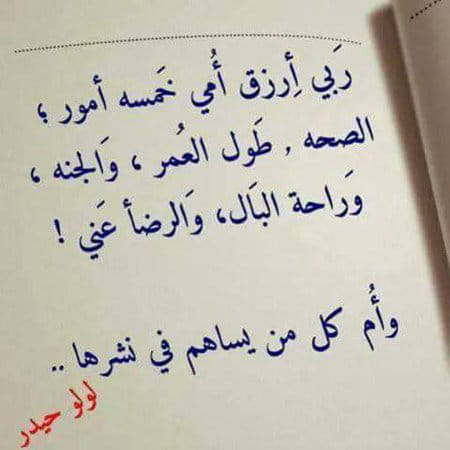 رَبي أِرزق أُمي خَمسه أمور ؛
الصحه , طَول العُمر ، وَالجنه ،
وَراحة البَال، وَالرضأ عَني !
وأُم كل من يساهم في نشرها ..
لولو حيدر